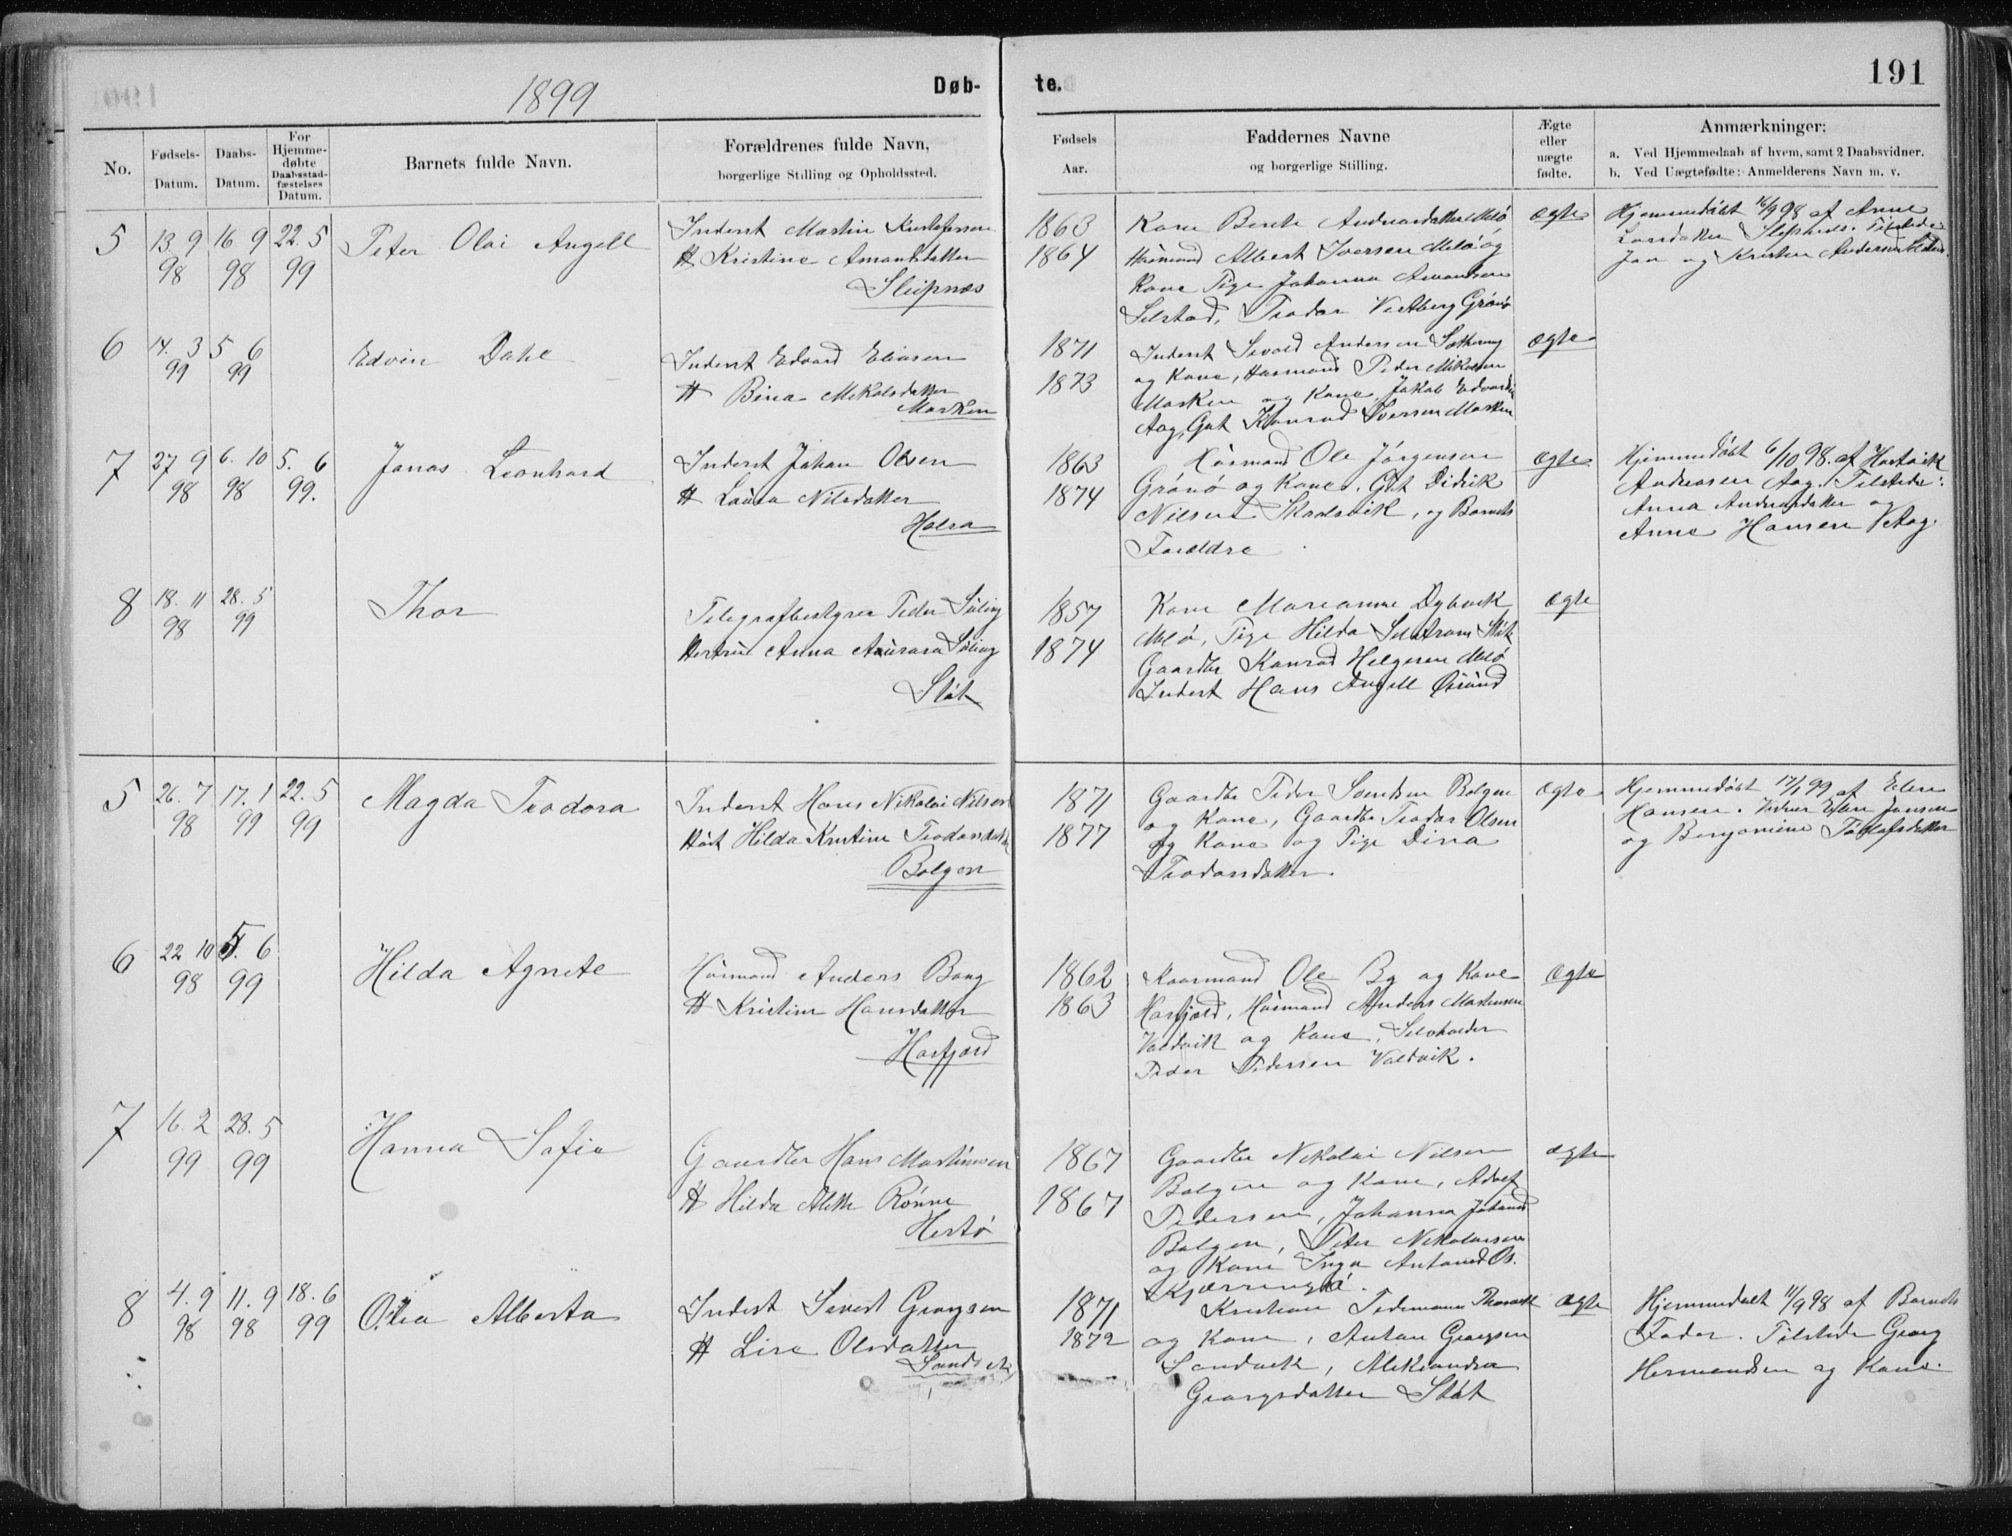 191
1899
Døb-
te.
No.
Fødsels-
Datum.
Daabs-
Datum.
For
Hjemme-
døbte
Daabsstad-
fæstelses
Datum.
Barnets fulde Navn.
Forældrenes fulde Navn,
borgerlige Stilling og Opholdssted.
Fødsels
Aar.
Faddernes Navne
og borgerlige Stilling.
Ægte
eller
uægte
fødte.
Anmærkninger:
a. Ved Hjemmedaab af hvem, samt 2 Daabsvidner.
b. Ved Uægtefødte: Anmelderens Navn m. v.
5
13 9
98
16 9
98
22. 5
99
Peter Olai Angell
Inderst Martin
H Kristine Amantsdatter
Sleipnæs
1863
1864
Kone Berte Meló
Albert Iversen Meló og
Kone Pige Johanna Amandsen
Selstad, Teodor Vestberg Grønø
ægte
Hjemmedøbt 16/9 98 af Anne
Larsdatter Tilstede
og Kristen Andersen
6
14. 3
99
5 6
99
Edvin Dahl
Inderst Edvard Eliasen
H Bina Mikalsdatter
Masken
1871
1873
Inderst Sivald Andersen
og Kone, Husmand Peder Mikalsen
Masken og Kone Jakob
Aag, Gut Konrad Iversen Masken
ægte
7
27 9
98
6. 10
98
5. 6
99.
Jonas Leonhard
Inderst Johan Olsen
H Laura Nilsdatter
Halsa
1863
1874
Húsmand Ole Jørgensen
Grønø og Kone. Gut Didrik
Nilsen Skadsvik, og Barnets
Forældre
ægte
Hjemmedøbt 6/10 98. af Hartvik
Andreasen Aag. Tilstede:
Anna og
Anne Hansen Aag.
8
18. 11
98
28. 5
99
Thor
Telegrafbestyrer Peder Súling
Hustrue Anna Aúrora Súling
Støt
1857
1874
Kone Marianne Dybvik
Meló, Pige Hilda Støt
Gaardbr Konrad Helgesen Meló
Inderst Hans Angell Ørsund
ægte
5
26. 7
98
17. 1
99
22. 5
99
Magda Teodora
Inderst Hans Nikolai Nilsen
Hust Hilda Kristine
Bolgen
1871
1877
Gaardbr Peder Svendsen Bolgen
og Kone, Gaardbr Teodor Olsen
og Kone og Pige Dina
Teodorsdatter.
ægte
Hjemmedøbt 17/1 99 af Elen
Hansen. Vidner Elen Jansen
og Benjamine
6
22 10
98
5. 6
99
Hilda Agnete
Húsmand Anders Bang
H Kristine Hansdatter
Harfjord
1862
1863
Kaarmand Ole By og Kone
Harfjord, Húsmand Anders Martinsen
Valdvik og Kone, Selvholder
Peder Pedersen Valdvik.
ægte
7
16. 2
99
28. 5
99
Hanna Sofie
Gaardbr Hans Martinusen
H Hilda Alette Rønne
Hestø
1867
1867
Gaardbr Nikolai Nilsen
Bolgen og Kone, Adolf
Pedersen, Johanna
Bolgen, Peter Nikolaisen
og Kone Inga
Kjærringø.
ægte
8
4. 9
98
11. 9
98
18. 6
99
Olea Alberta
Inderst Sivert Georgsen
H Lise Olsdatter
1871
1872
Kristian Tidemann
og Kone, Anton Georgsen
Sandvik, Aleksandra
Georgsdatter Støt
ægte
Hjemmedøbt 11/9 98 af Barnets
Fader. Tilstede Georg
Hermandsen og Kone.